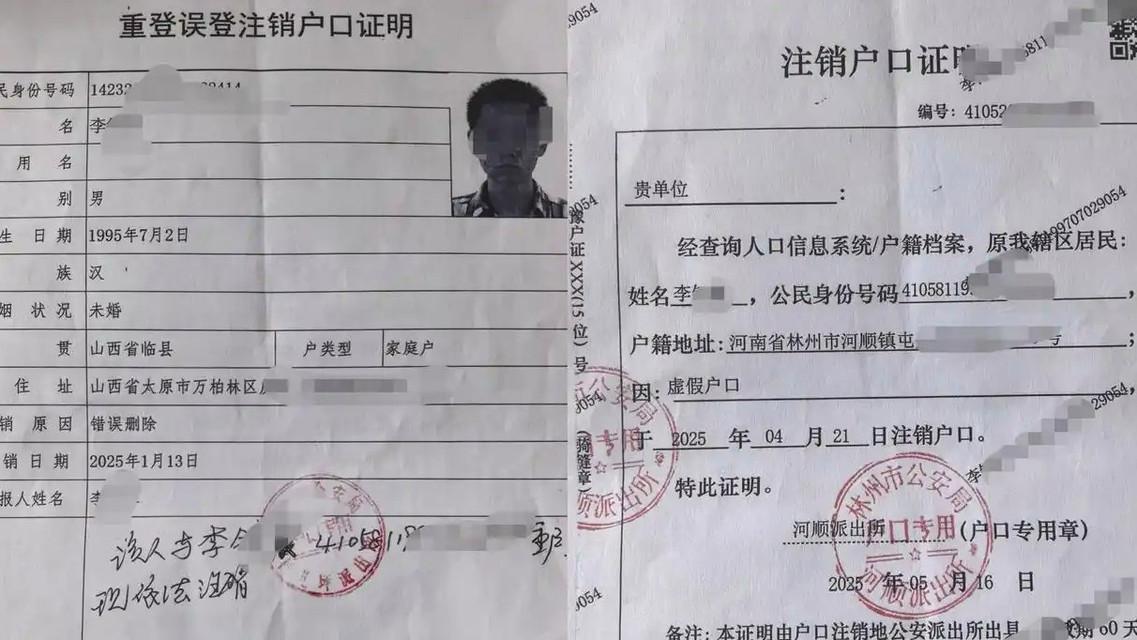 重登误登注销户口证明
民身份号码 14232
名 李
用 名
别 男
生 日期 1995年7月2日
族 汉
姻 状况 未婚
贯 山西省临县 户类型 家庭户
住 址 山西省太原市万柏林区
销 原因 错误删除
销日期 2025年1月13日
报人姓名 李
该人与李 41058119 重
现依法注销
注销户口证明
编号: 41052
贵单位 :
经查询人口信息系统/户籍档案，原我辖区居民:
姓名李 ，公民身份号码41058119 ，
户籍地址: 河南省林州市河顺镇屯 号;
因: 虚假户口 ，
于 2025 年 04 月 21 日注销户口。
特此证明。
河顺派出所 (户口专用章)
2025 年 05 月 16 日
备注: 本证明由户口注销地公安派出所出具 期60天
林州市公安局
户口专用
河顺派出所
公安局
专用
顺派出所
户证XXX(15位)号
(骑缝章)
199707029054
29054
9054
9054
9054
9054